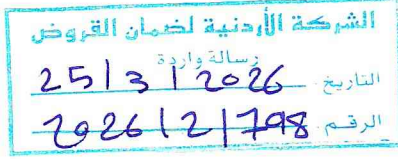 الشركة الأردنية لضمان القروض
رسالة واردة
التاريخ 25/3/2026
الرقم 2026/2/798